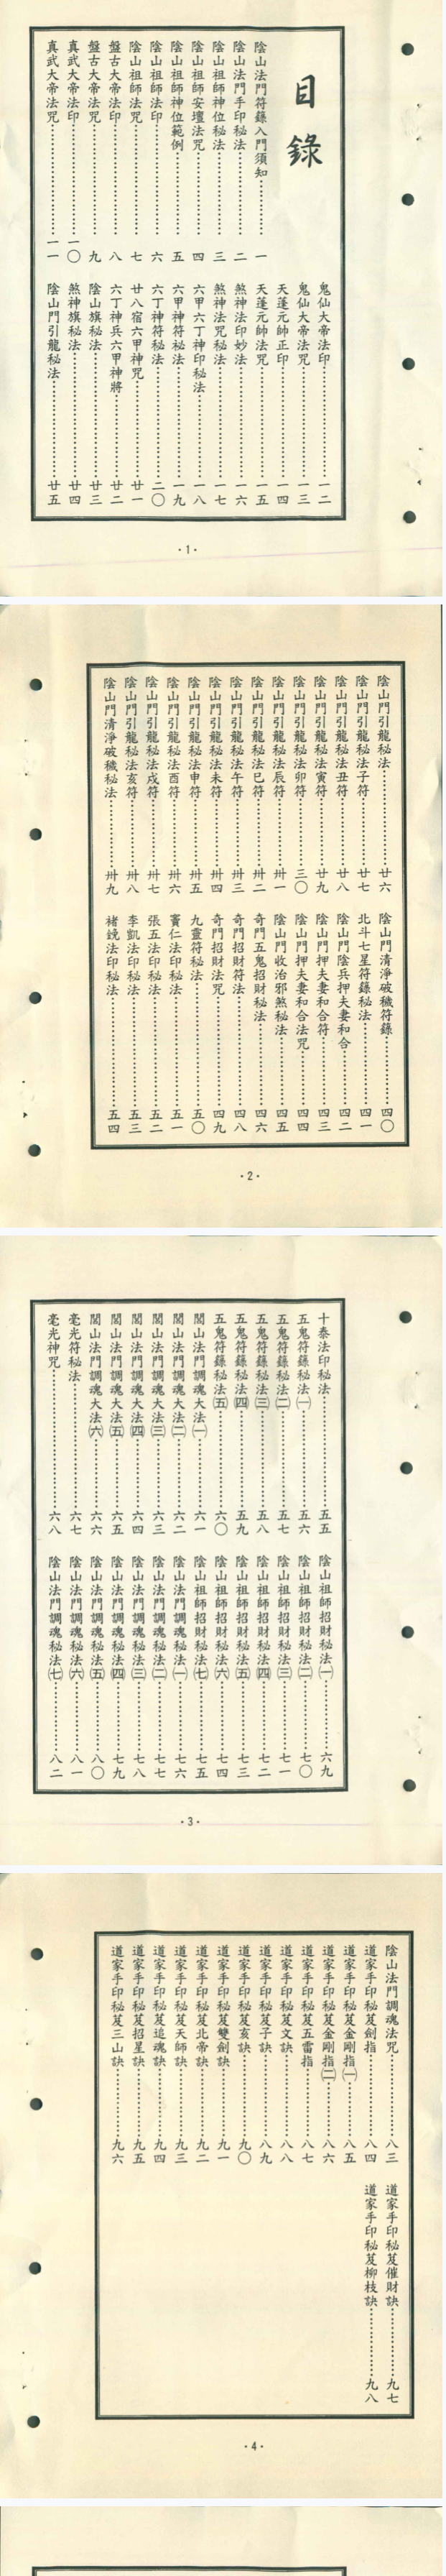 目錄
陰山法門符籙入門須知………一
陰山法門手印秘法………二
陰山祖師神位秘法………三
陰山祖師安壇法咒………四
陰山祖師神位範例………五
陰山祖師法印………六
陰山祖師法咒………七
盤古大帝法印………八
盤古大帝法咒………九
真武大帝法印………一〇
真武大帝法咒………一一
鬼仙大帝法印………一二
鬼仙大帝法咒………一三
天蓬元帥正印………一四
天蓬元帥法咒………一五
煞神法印妙法………一六
煞神法咒秘法………一七
六甲六丁神印秘法………一八
六甲神符秘法………一九
六丁神符秘法………二〇
廿八宿六甲神咒………廿一
六丁神兵六甲神將………廿二
陰山旗秘法………廿三
煞神旗秘法………廿四
陰山門引龍秘法………廿五
·1·
陰山門引龍秘法………廿六
陰山門引龍秘法子符………廿七
陰山門引龍秘法丑符………廿八
陰山門引龍秘法寅符………廿九
陰山門引龍秘法卯符………三〇
陰山門引龍秘法辰符………卅一
陰山門引龍秘法巳符………卅二
陰山門引龍秘法午符………卅三
陰山門引龍秘法未符………卅四
陰山門引龍秘法申符………卅五
陰山門引龍秘法酉符………卅六
陰山門引龍秘法戌符………卅七
陰山門引龍秘法亥符………卅八
陰山門清淨破穢秘法………卅九
陰山門清淨破穢符籙………四〇
北斗七星符籙秘法………四一
陰山門陰兵押夫妻和合………四二
陰山門押夫妻和合符………四三
陰山門押夫妻和合法咒………四四
陰山門收治邪煞秘法………四五
奇門五鬼招財秘法………四六
奇門招財符法………四八
奇門招財法咒………四九
九靈符秘法………五〇
竇仁法印秘法………五一
張五法印秘法………五二
李凱法印秘法………五三
褚鋭法印秘法………五四
·2·
十泰法印秘法………五五
五鬼符籙秘法㈠………五六
五鬼符籙秘法㈡………五七
五鬼符籙秘法㈢………五八
五鬼符籙秘法㈣………五九
五鬼符籙秘法㈤………六〇
閭山法門調魂大法㈠………六一
閭山法門調魂大法㈡………六二
閭山法門調魂大法㈢………六三
閭山法門調魂大法㈣………六四
閭山法門調魂大法㈤………六五
閭山法門調魂大法㈥………六六
毫光符秘法………六七
毫光神咒………六八
陰山祖師招財秘法㈠………六九
陰山祖師招財秘法㈡………七〇
陰山祖師招財秘法㈢………七一
陰山祖師招財秘法㈣………七二
陰山祖師招財秘法㈤………七三
陰山祖師招財秘法㈥………七四
陰山祖師招財秘法㈦………七五
陰山法門調魂秘法㈠………七六
陰山法門調魂秘法㈡………七七
陰山法門調魂秘法㈢………七八
陰山法門調魂秘法㈣………七九
陰山法門調魂秘法㈤………八〇
陰山法門調魂秘法㈥………八一
陰山法門調魂秘法㈦………八二
·3·
陰山法門調魂法咒………八三
道家手印秘芨劍指………八四
道家手印秘芨金剛指㈠………八五
道家手印秘芨金剛指㈡………八六
道家手印秘芨五雷指………八七
道家手印秘芨文訣………八八
道家手印秘芨子訣………八九
道家手印秘芨亥訣………九〇
道家手印秘芨雙劍訣………九一
道家手印秘芨北帝訣………九二
道家手印秘芨天師訣………九三
道家手印秘芨追魂訣………九四
道家手印秘芨招星訣………九五
道家手印秘芨三山訣………九六
道家手印秘芨催財訣………九七
道家手印秘芨柳枝訣………九八
·4·